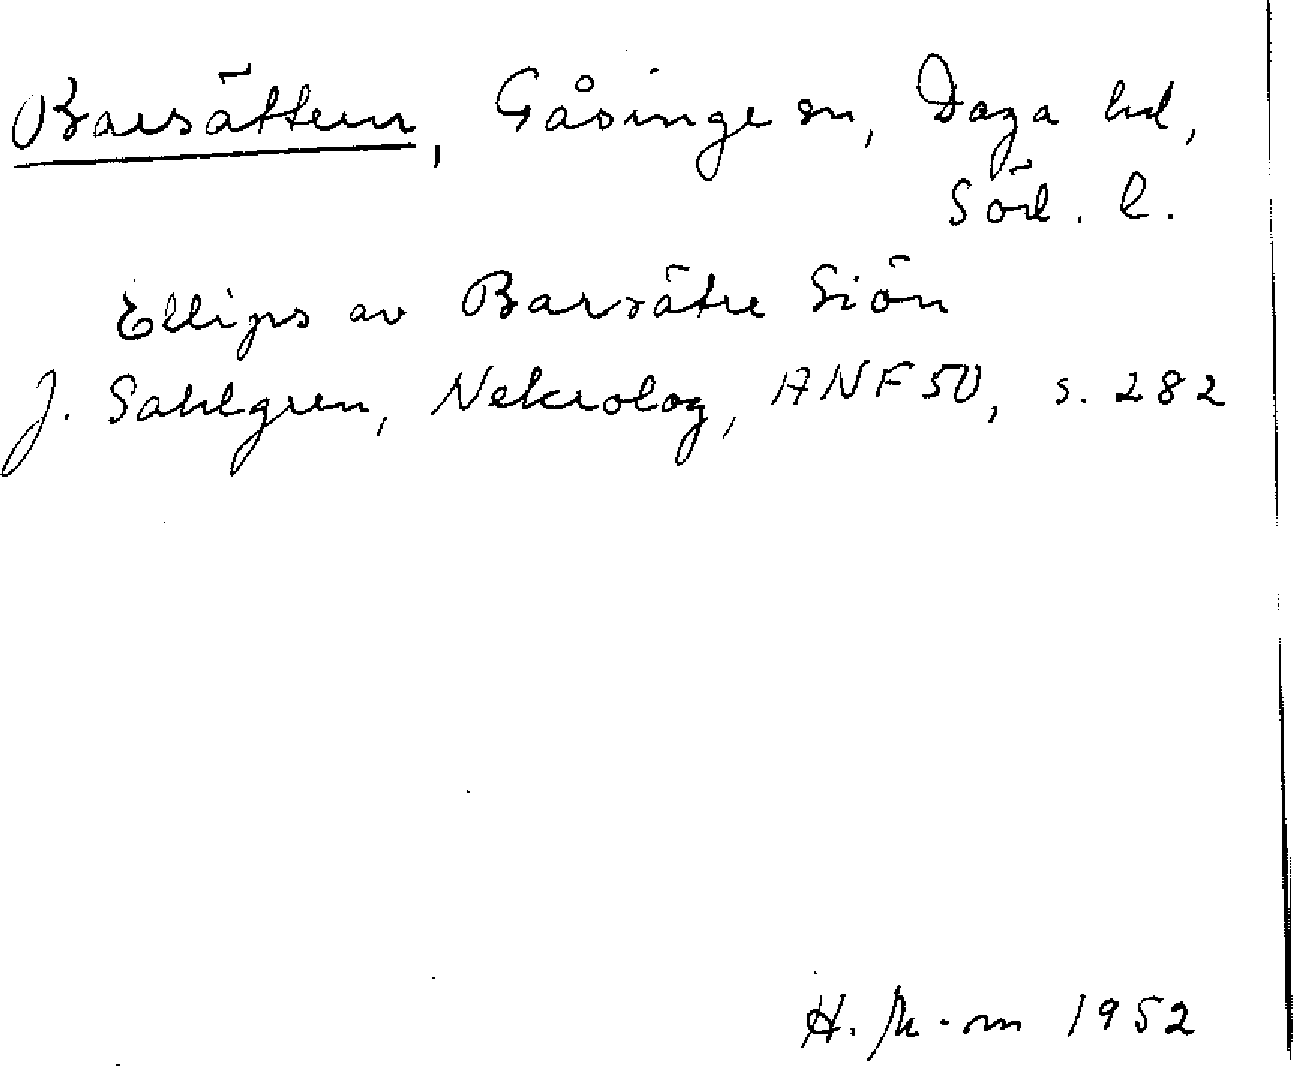 Barsättern, Gåsinge sn, Daga hd,
Söd. l.
Ellips av Barsätre Siön
J. Sahlgren, Nekrolog, ANF 50, s. 282
H. 1952